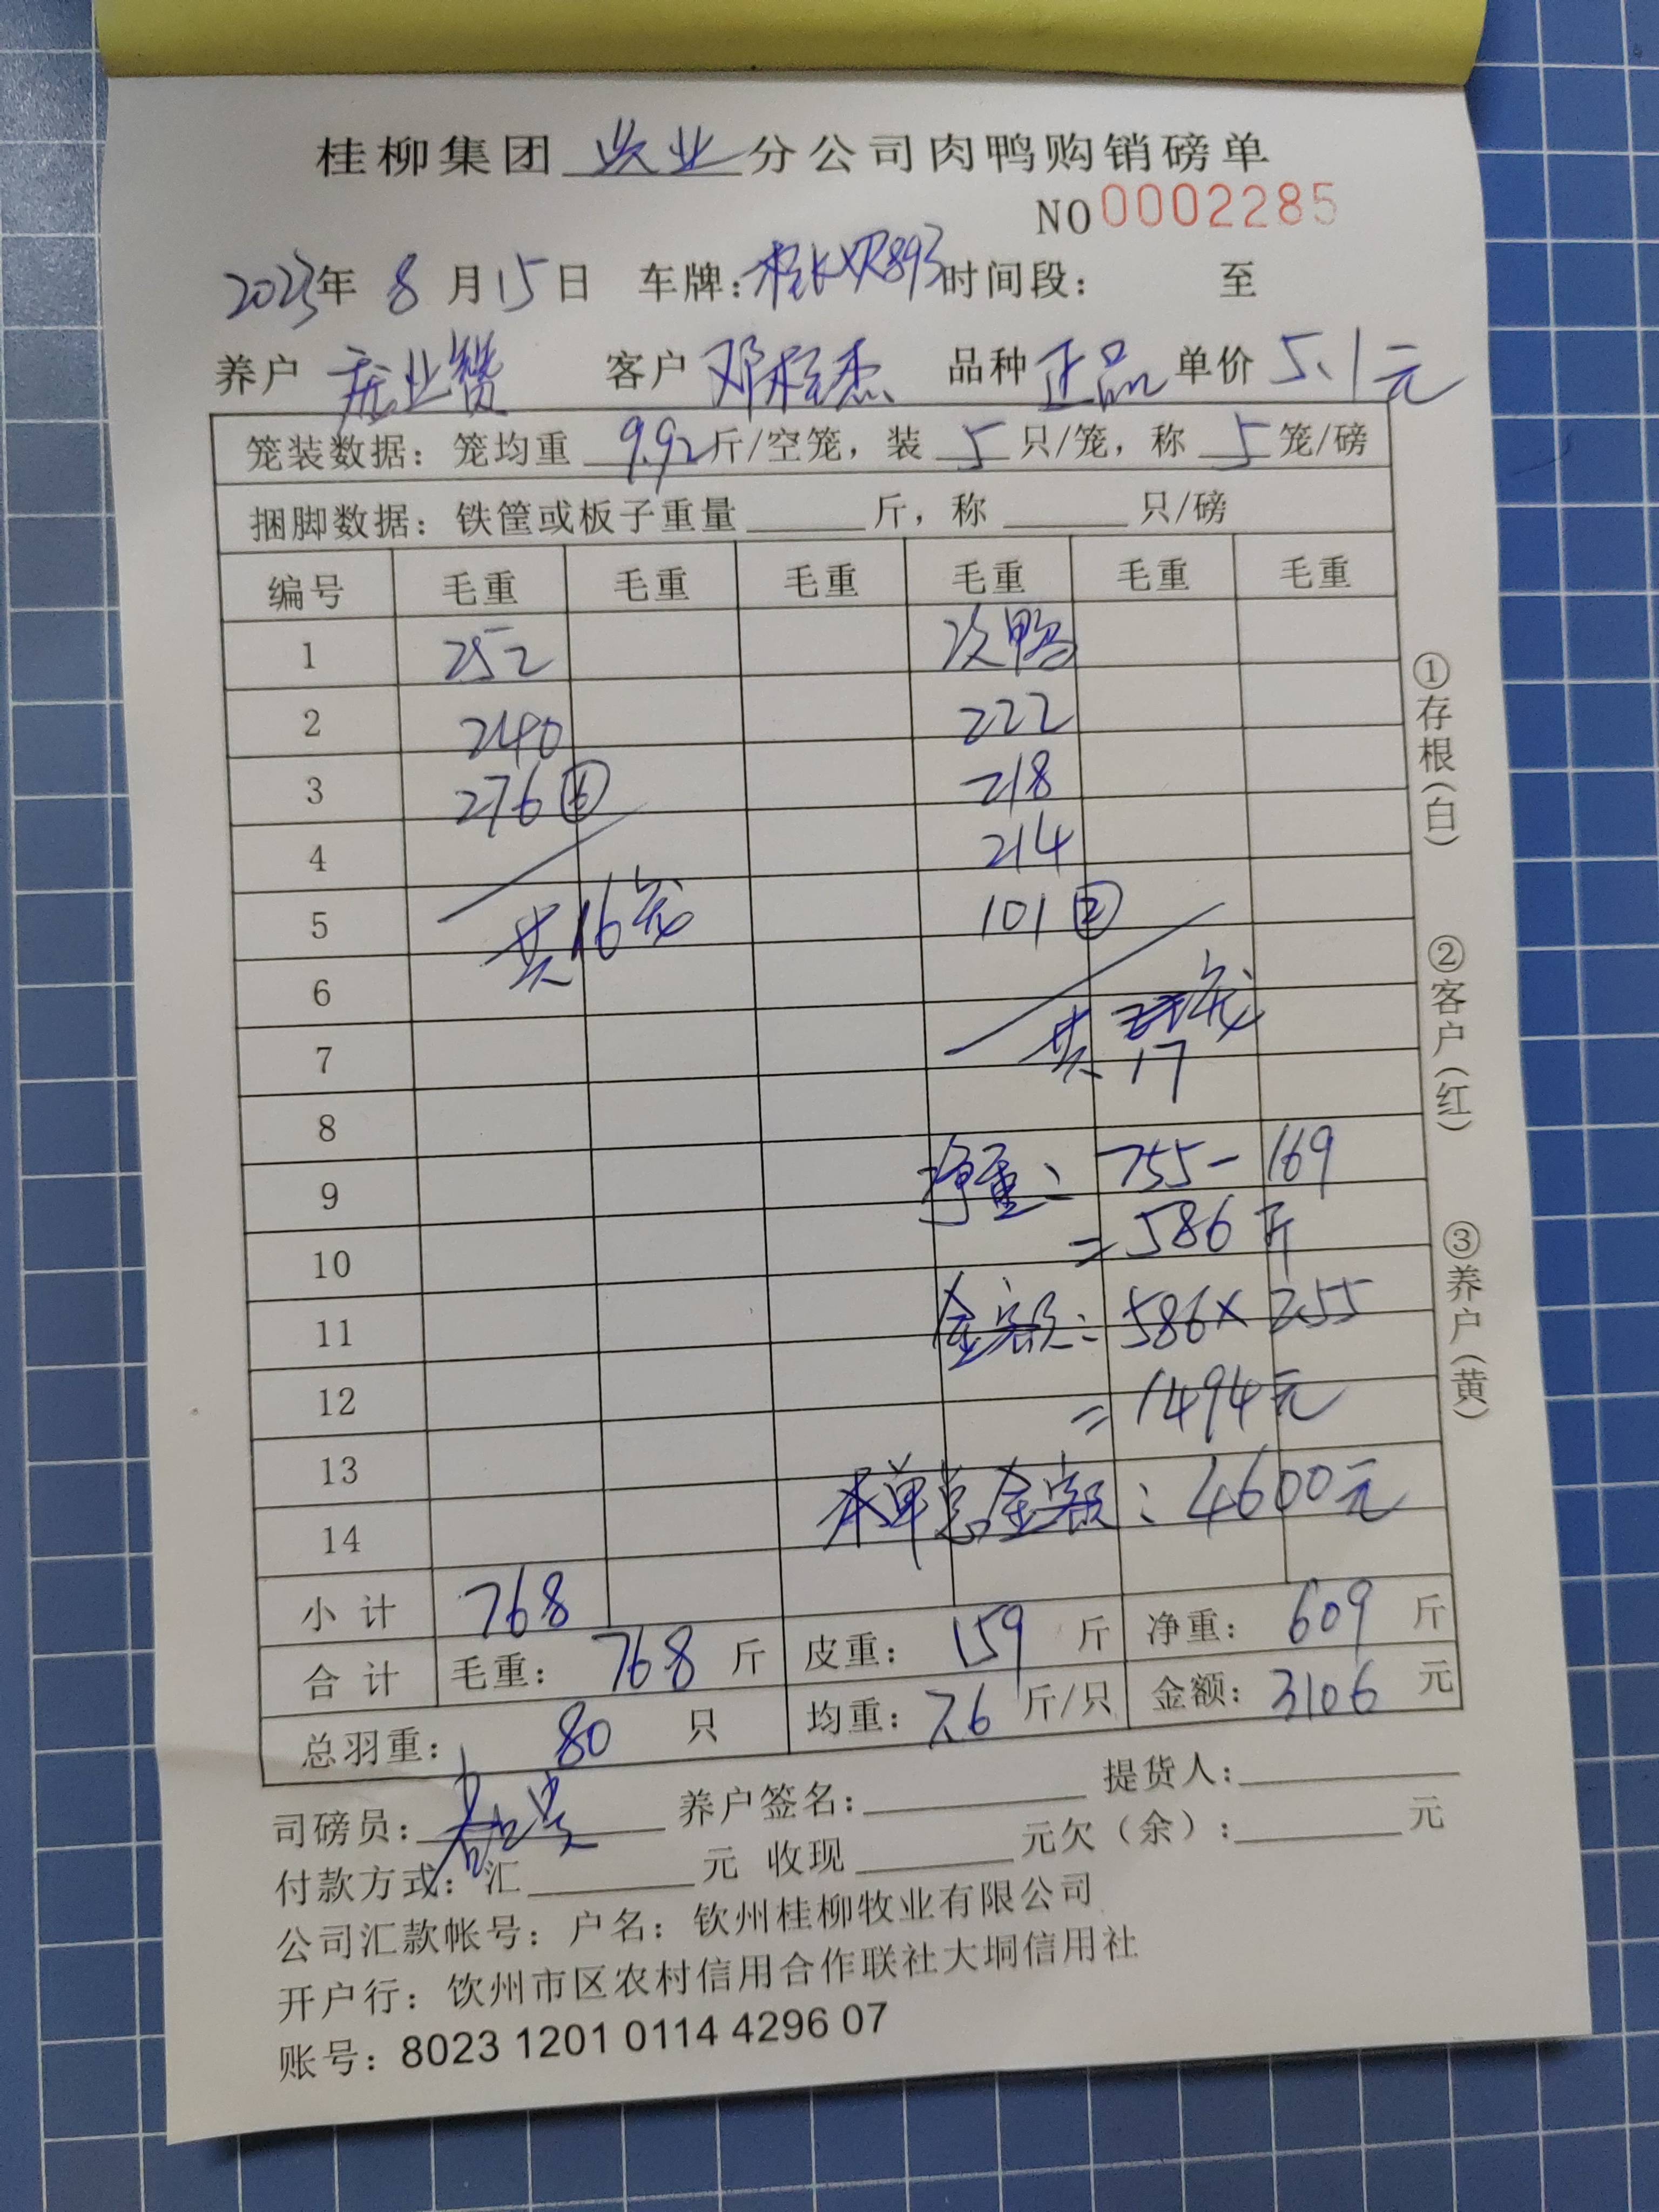 桂柳集团 牧业 分公司肉鸭购销磅单
NO 0002285
2023年 8 月 15 日 车牌: 893 时间段: 至
养户 庞业赞 客户 邓程杰 品种 正品 单价 5.1元
笼装数据: 笼均重 9.92 斤/空笼, 装 5 只/笼, 称 5 笼/磅
捆脚数据: 铁筐或板子重量 斤, 称 只/磅
编号 毛重 毛重 毛重 毛重 毛重 毛重
1 252 次鸭
2 240 222
3 276 ⑥ 218
4 214
5 共16笼 101 ②
6 共 笼
7 17
8
9 净重: 755-169
10 =586斤
11 金额: 586×2.55
12 =1494元
13
14 本单总金额: 4600元
小计 768
合计 毛重: 768 斤 皮重: 159 斤 净重: 609 斤
总羽重: 80 只 均重: 7.6 斤/只 金额: 3106 元
司磅员: 养户签名: 提货人:
付款方式: 汇 元 收现 元欠(余): 元
公司汇款帐号: 户名: 钦州桂柳牧业有限公司
开户行: 钦州市区农村信用合作联社大垌信用社
账号: 8023 1201 0114 4296 07
①存根(白)
②客户(红)
③养户(黄)